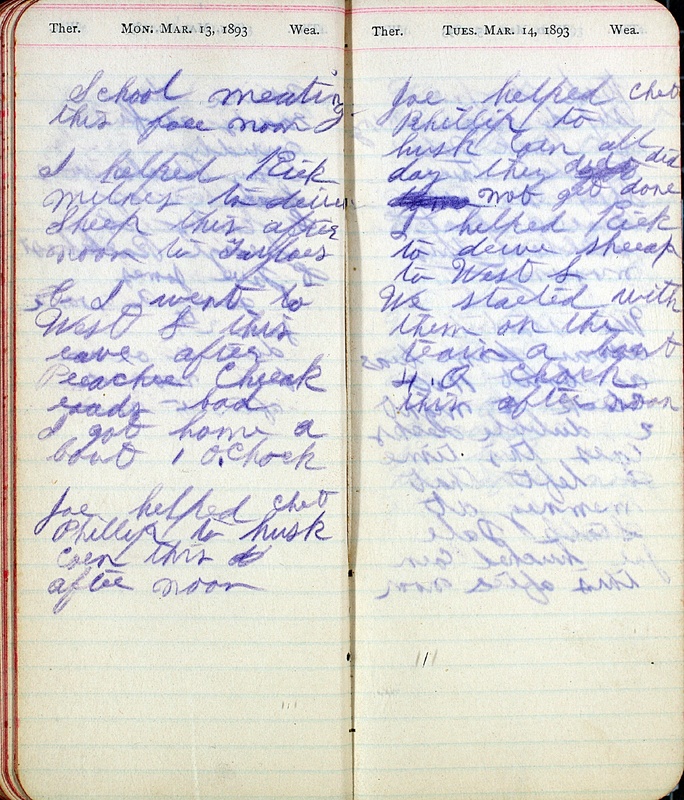 Ther. MON. MAR. 13, 1893 Wea.
School meating
this foee noon
I helped Rick
Milner to deive
Sheep this after
noon to Tayloes
I went to
West S this
eave after
Peeachee Cheeak
roads bad
I got home a
bout 1 O.Chock
Joe helped chet
Phillip to husk
coen this
aftee noon
Ther. TUES. MAR. 14, 1893 Wea.
Joe helped chet
Phillip to
husk Coen all
day they did
not get done
I helped Rick
to deive sheeap
to West S
We staeted with
them on the
teain a bout
4.O Chock
this aftee noon